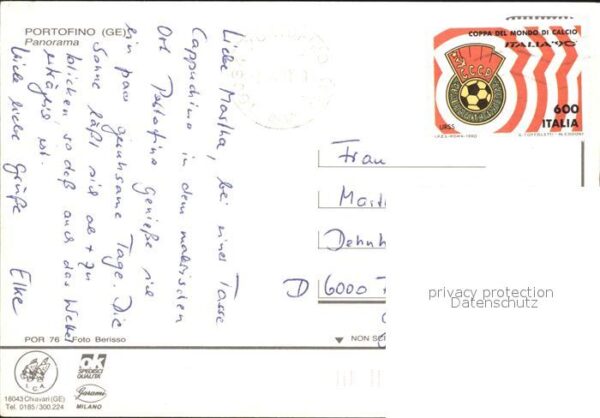 PORTOFINO (GE)
Panorama
Liebe Martha, bei einer Tasse
Cappuchino in dem malerischen
Ort Portofino genieße ich
ein paar geruhsame Tage. Die
Sonne läßt sich ab + zu
blicken, so daß auch das Wetter
erträglich ist.
Viele liebe Grüße Elke
COPPA DEL MONDO DI CALCIO
ITALIA '90
CCCP
600
ITALIA
URSS
I.P.Z.S.-ROMA-1990
Frau
D 6000
privacy protection
Datenschutz
POR 76 Foto Berisso
NON
I.G.A.
16043 Chiavari (GE)
Tel. 0185/300.224
OK
SPEDISCI
QUALITÀ
Garami
MILANO